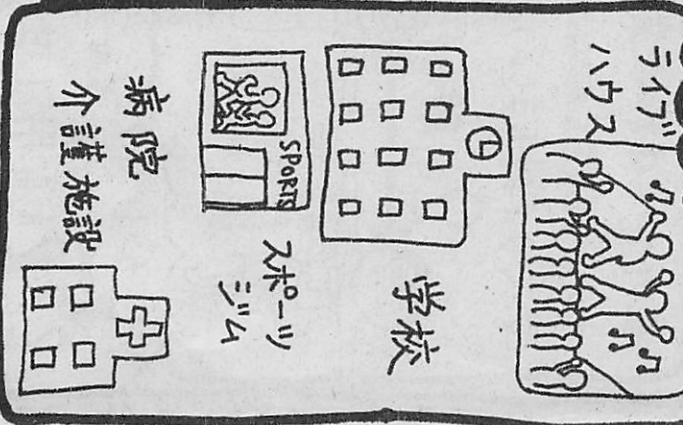 ライブ
ハウス
学校
SPORTS
スポーツ
ジム
病院
介護施設